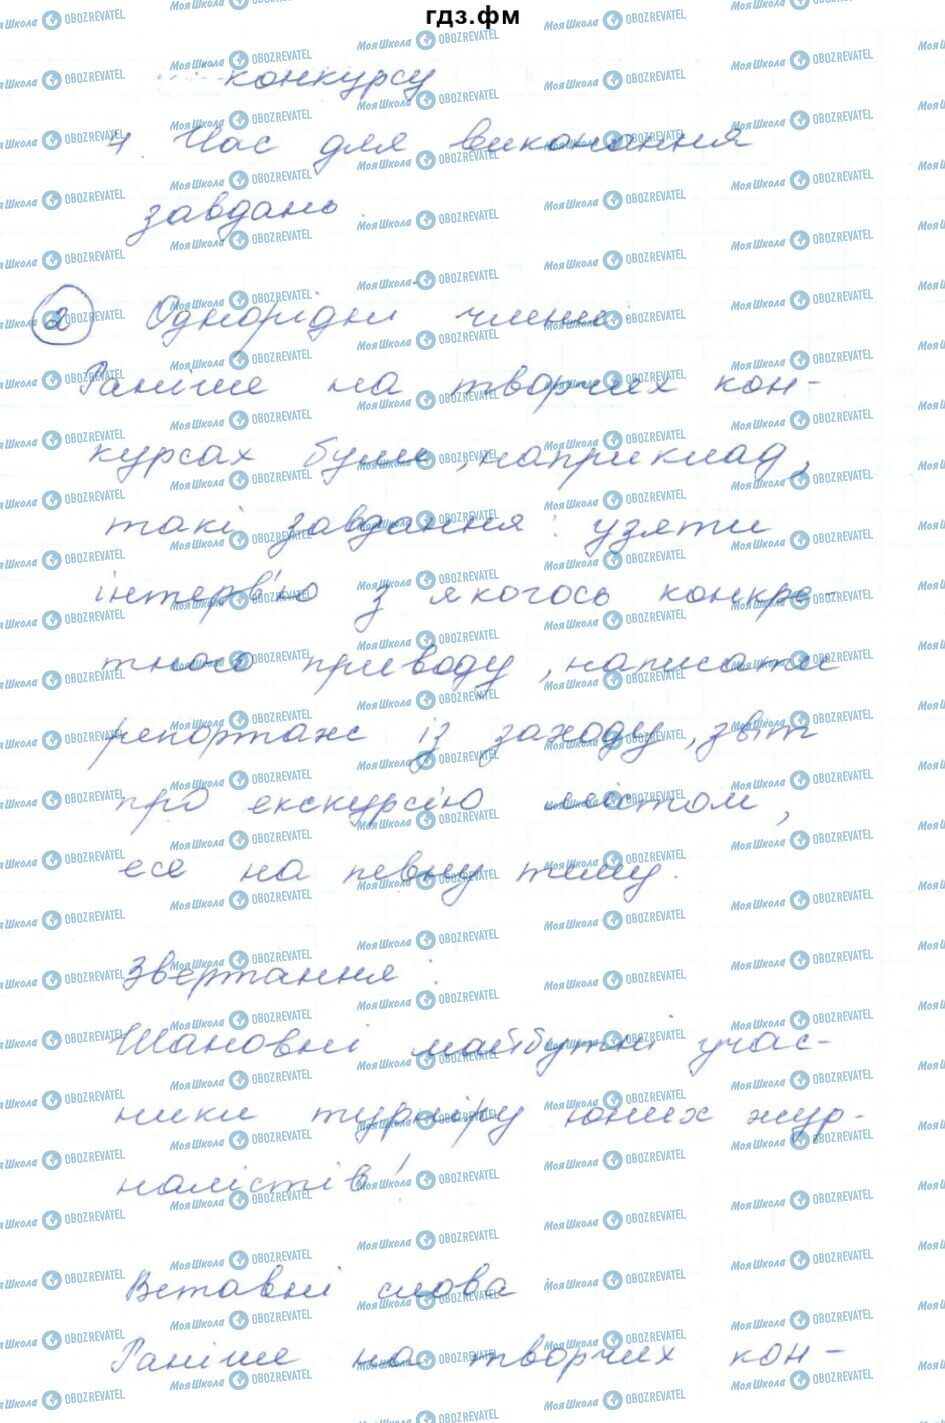 гдз.фм
конкурсу
4. Час для виконання
завдань.
2 Однорідні члени.
Раніше на творчих кон-
курсах були, наприклад,
такі завдання: узяти
інтерв'ю з якогось конкре-
тного приводу, написати
репортаж із заходу, звіт
про екскурсію містом,
есе на певну тему.
Звертання:
Шановні майбутні учас-
ники турніру юних жур-
налістів!
Вставні слова
Раніше на творчих кон-